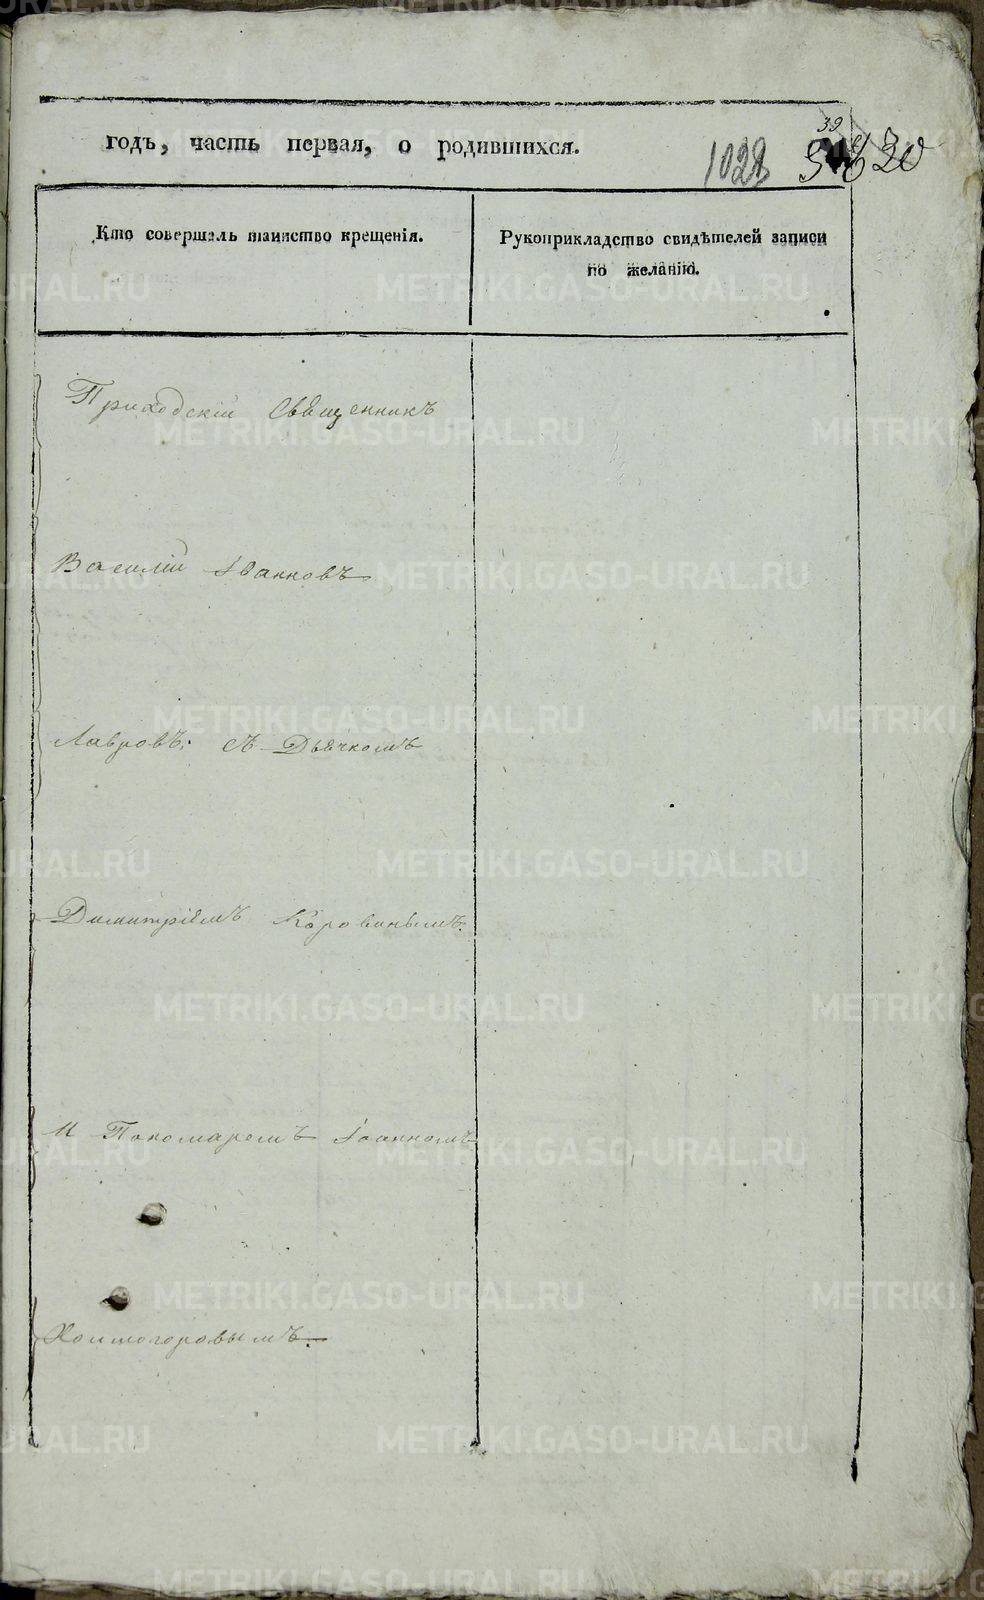 годъ, часть первая, о родившихся.
39
1028
Кто совершалъ таинство крещенія.
Рукоприкладство свидѣтелей записи
по желанію.
Приходскій Священникъ
Василій Іоанновъ
Лавровъ. съ Дьячкомъ
Димитріемъ
и Пономаремъ Іоанномъ
Холмогоровымъ.
METRIKI.GASO-URAL.RU